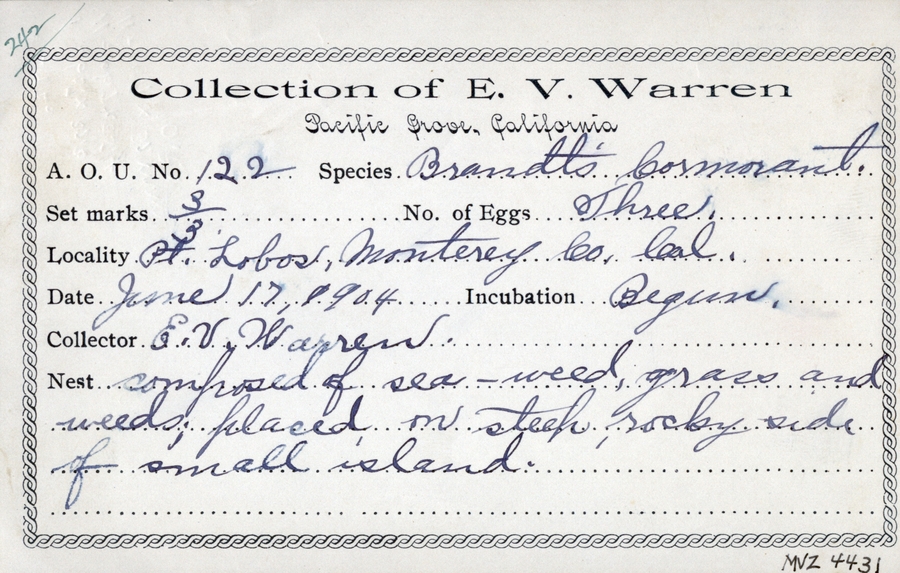 242
Collection of E. V. Warren
Pacific Grove, California
A. O. U. No. 122 Species Brandt's Cormorant.
Set marks 3/3 No. of Eggs Three.
Locality Pt. Lobos, Monterey Co. Cal.
Date June 17, 1904 Incubation Begun.
Collector E. V. Warren.
Nest composed of sea-weed, grass and
weeds; placed on steep, rocky side
of small island.
MVZ 4431